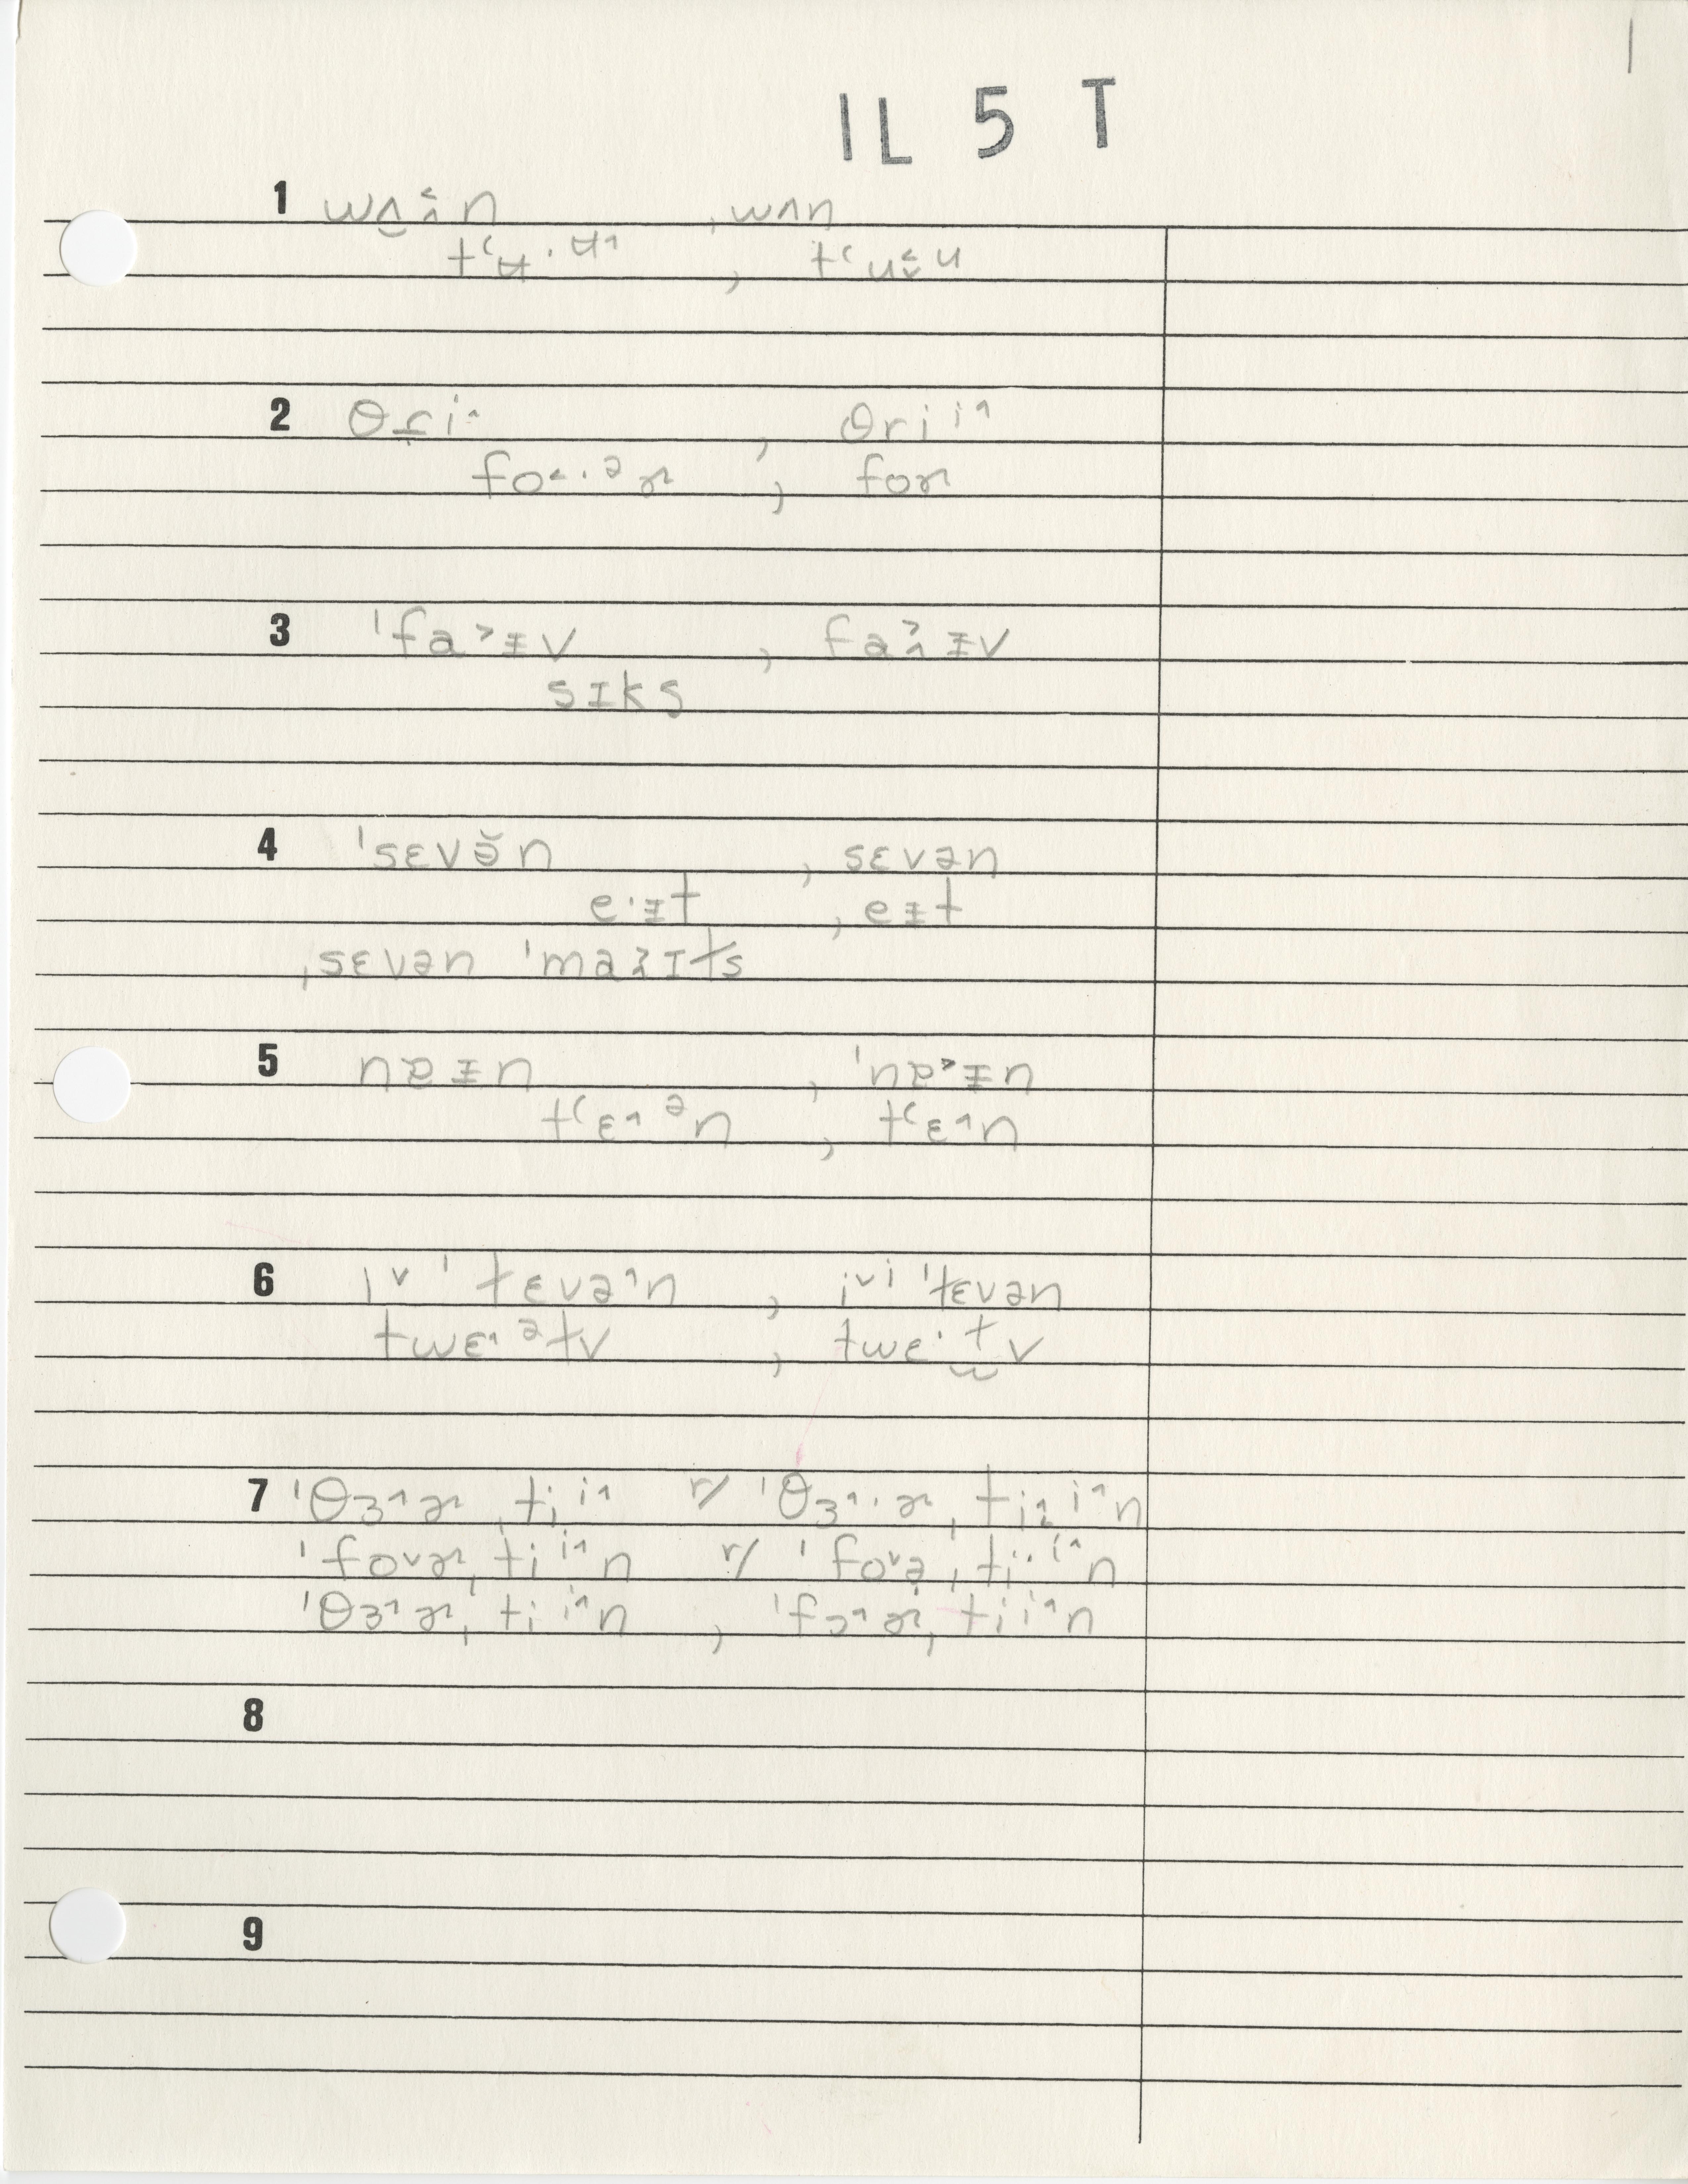 1
IL 5 T
1 wʌ̯˂̭n , wʌn
tʻʉ·ʉ˄ , tʻu˅̬u
2 θɾi˄ , θriⁱ˄
fo˂·ᵊɚ , foɚ
3 ˈfa˃ɪv , fa˃̭ɪv
sɪks
4 ˈsɛvə̆n , sɛvən
e·ɪt , eɪt
ˌsɛvən ˈma˃̭ɪts
5 nɐɪn , ˈnɐ˃ɪn
tʻɛ˄ᵊn , tʻɛ˄n
6 ɪ˅ ˈtɛvə˄n , i˅i ˈtɛvən
twɛ˄ᵊtv , twɛ·t̫v
7 ˈθɜ˄ɚˌtiⁱ˄ r/ ˈθɜ˄·ɚˌti˄ⁱ˄n
ˈfo˅ɚˌtiⁱ˄n r/ ˈfo˅əˌti·ⁱ˄n
ˈθɜ˄ɚˌtiⁱ˄n , ˈfɔ˄ɚˌtiⁱ˄n
8
9